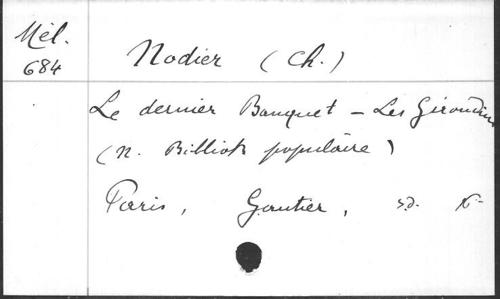 Mél.
684
Nodier (Ch.)
Le dernier Banquet - Les Girondins
(N. Biblioth populaire)
Paris, Gautier, s.d.